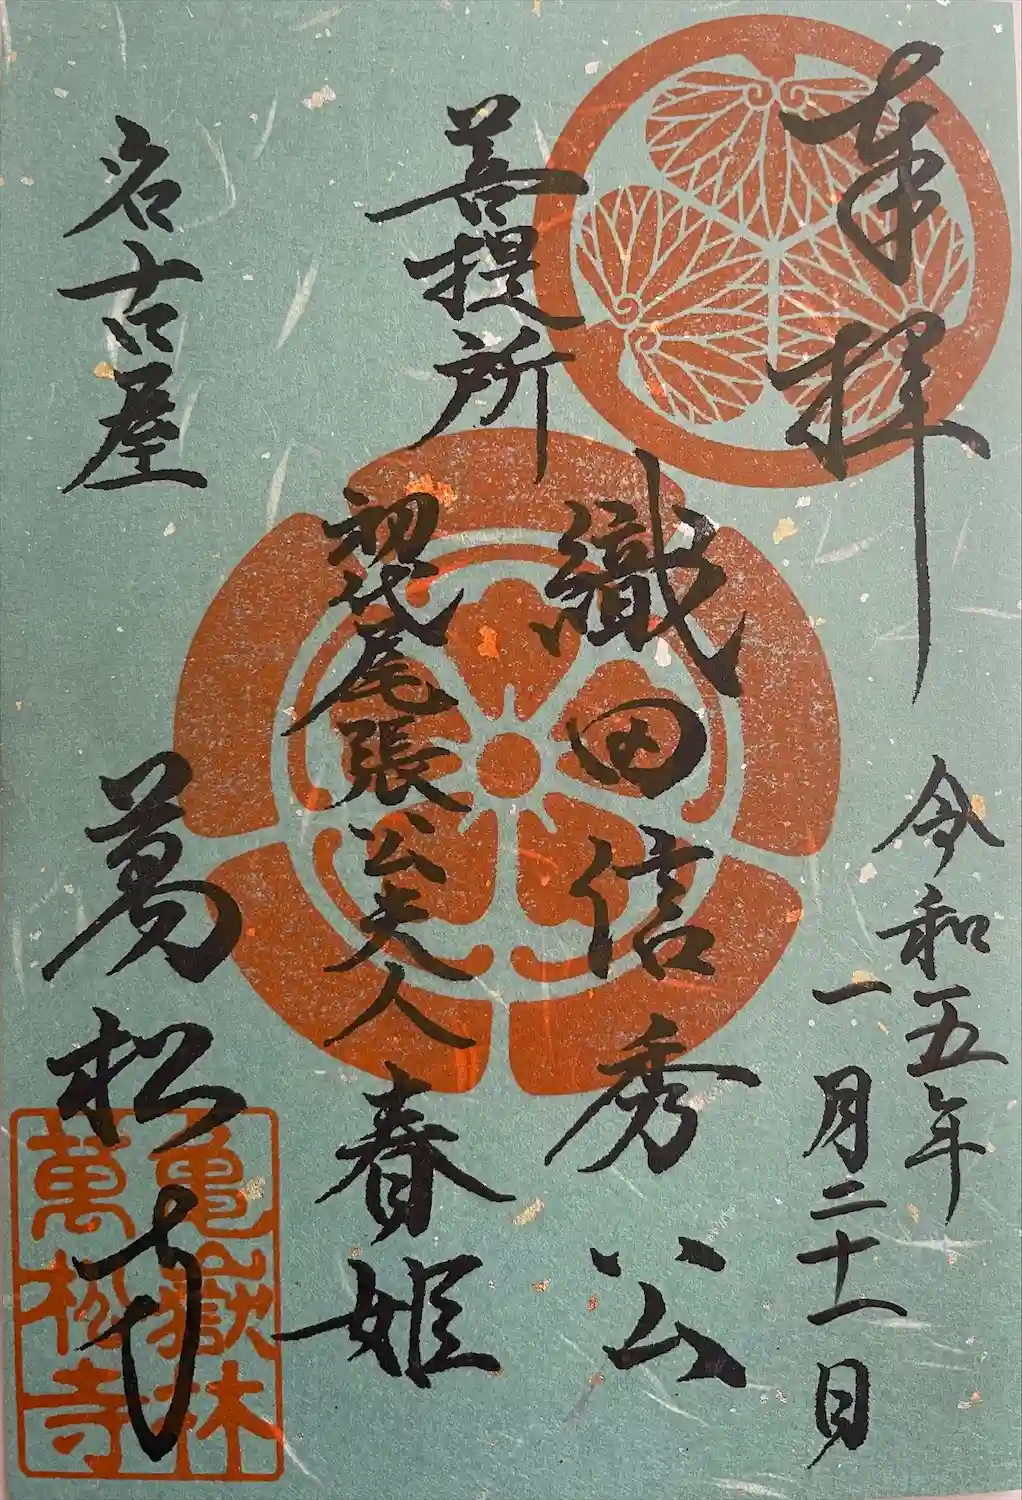 奉拝
令和五年
一月二十一日
菩提所
織田信秀公
初代尾張公夫人
春姫
名古屋
萬松寺
亀嶽林
萬松寺